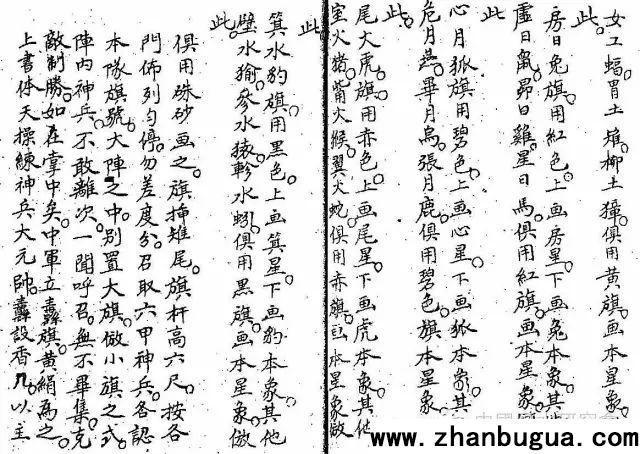 女土蝠。胃土雉。柳土獐。俱用黄旗。画本星象。
此。
房日兔旗用紅色。上画房星。下画兔本象。其他
虛日鼠。昴日雞。星日馬。俱用紅旗。画本星象
此
心月狐旗用碧色。上画心星。下画狐本象。其
危月燕。畢月烏。張月鹿。俱用碧色。旗本星象
此。
尾火虎。旗用赤色。上画尾星。下画虎本象。其他
室火猪。觜火猴。翼火蛇。俱用赤旗。画本星象。倣
此。
箕水豹旗用黒色。上画箕星。下画豹本象。其他
壁水㺄。參水猿。軫水蚓。俱用黒旗。画本星象。倣
此。
俱用硃砂画之。旗挿雉尾。旗杆高六尺。按各
門佈列勻停。勿差度分。召取六甲神兵。各認
本隊旗號。大陣之中。別置大旗。倣小旗之式。
陣内神兵。不敢離次。一聞呼召。無不畢集。克
敵制勝。如在掌中矣。中軍立纛旗。黄絹為之。
上書体天操練神兵大元帥。纛設香几。以主
www.zhanbugua.com